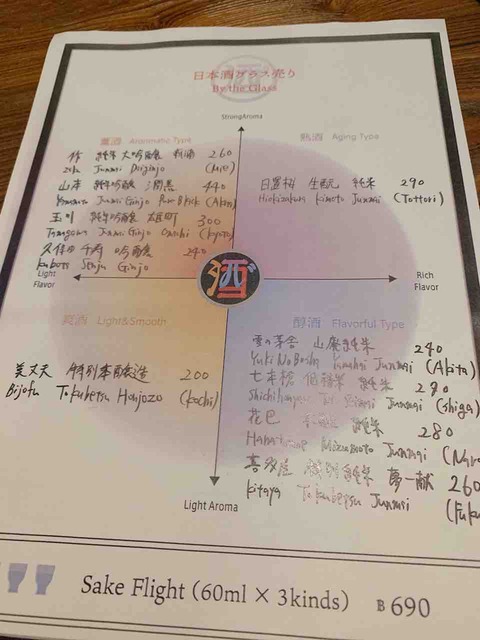 日本酒グラス売り
By the Glass
StrongAroma
薫酒 Aromatic Type
作 純米大吟醸 260
Zaku Junmai Daiginjo (Mie)
山本 純米吟醸 440
Yamamoto Junmai Ginjo Pure Black (Akita)
玉川 純米吟醸 雄町 300
Tamagawa Junmai Ginjo Omachi (Kyoto)
久保田 千寿 吟醸 240
Kubota Senju Ginjo
熟酒 Aging Type
日置桜 生酛 純米 290
Hiokizakura kimoto Junmai (Tottori)
Light
Flavor
酒
Rich
Flavor
爽酒 Light&Smooth
美丈夫 特別本醸造 200
Bijofu Tokubetsu Honjozo (Kochi)
醇酒 Flavorful Type
雪の茅舎 山廃純米 240
Yuki No Bosha Yamahai Junmai (Akita)
七本槍 純米 290
Shichihonyari Junmai (shiga)
花巴 純米 280
Mizumoto Junmai
喜多屋 特別純米 夢一献 260
kitaya Tokubetsu Junmai
Light Aroma
Sake Flight (60ml × 3kinds) ฿690